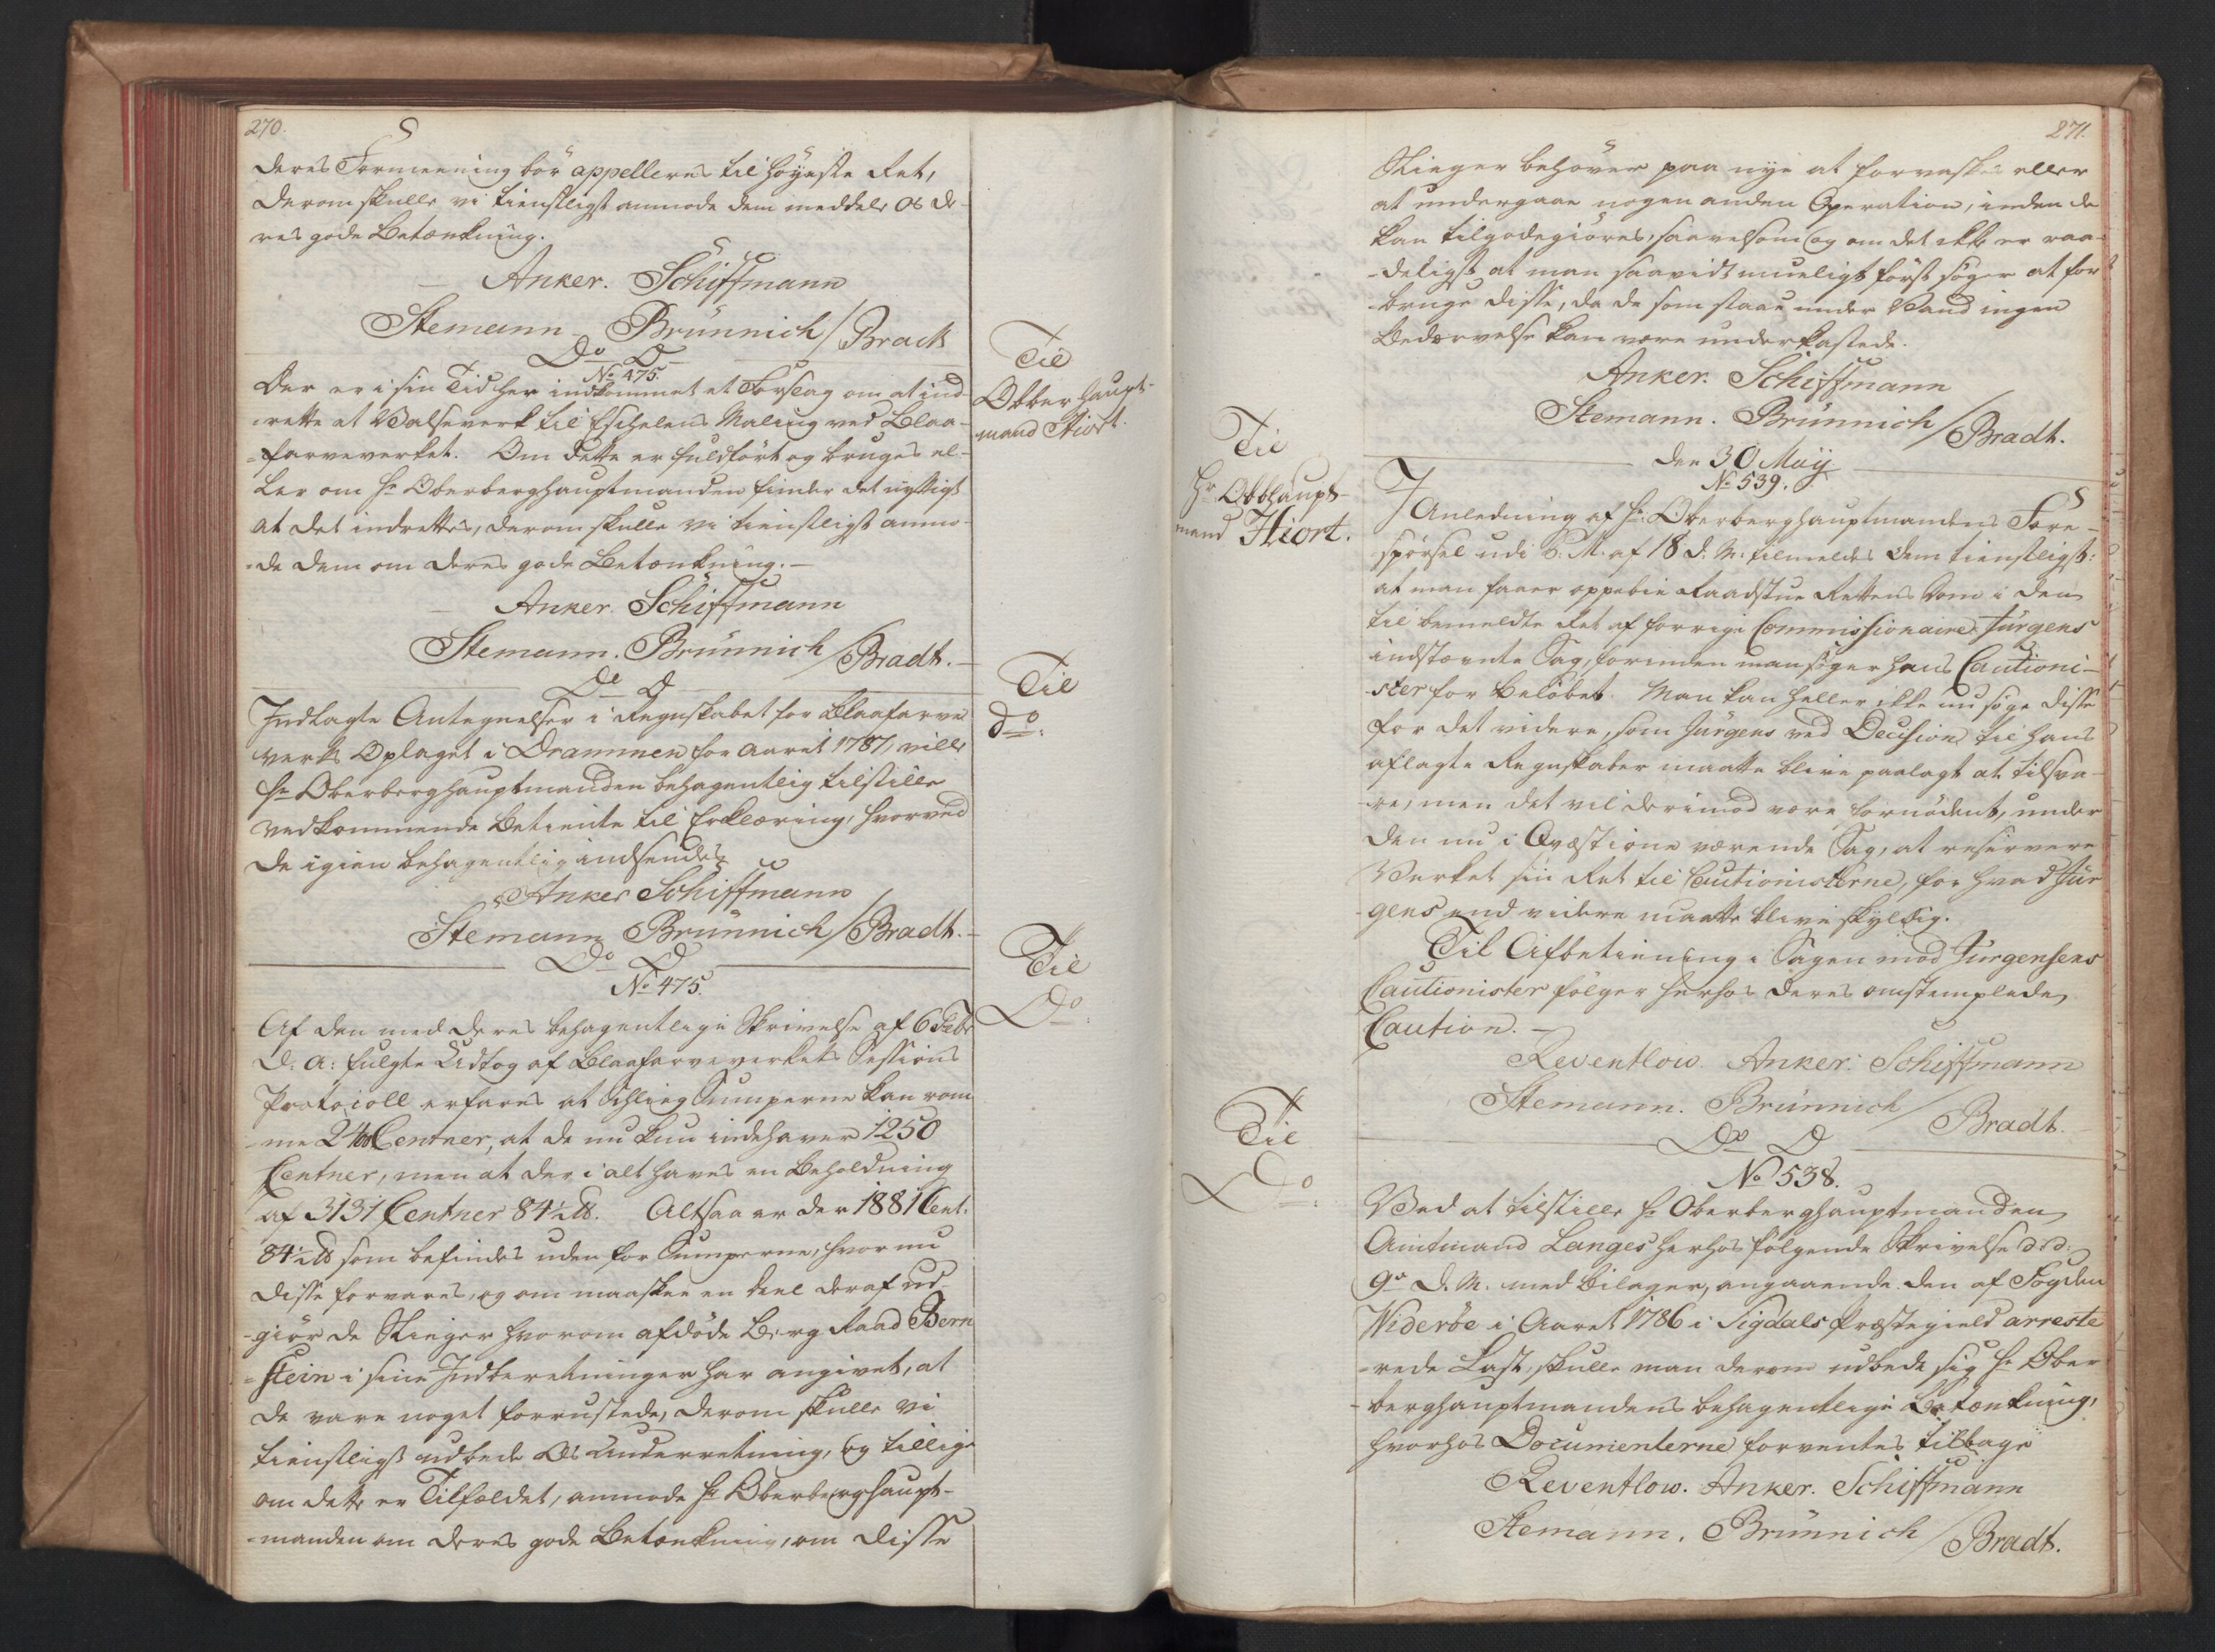 270.
deres Formeening bör appelleres til Höyeste Ret,
derom skulle vi tienstligst anmode dem meddele Os de-
res gode Betænkning.
Anker. Schiffmann
Stemann Brünnich / Bradt
Do D
No 475.
Til
Obberhaupt-
mand Hiort.
Der er i sin Tid her indkommet et Forslag om at ind-
-rette et Valseverk til Eschelens Maling ved Blaa-
-farveverket. Om dette er fuldfört og bruges el-
ler om Hr Oberberghauptmanden finder det nyttigt
at det indrettes, derom skulle vi tienstligst anmo-
-de dem om deres gode Betænkning.-
Anker. Schiffmann
Stemann. Brünnich / Bradt.
Do D
Til
do.
Indlagte Antegnelser i Regnskabet for Blaafarve
verks Oplaget i Drammen for Aaret 1787, ville
Hr Oberberghauptmanden behagentlig tilstille
vedkommende Betiente til Erklæring, hvorved
de igien behagentlig indsendes.
Anker Schiffmann
Stemann Brünnich / Bradt.
Do D
No 475.
Til
Do.
Af den med deres behagentlige Skrivelse af 6 Febr
d: A: fulgte Udtog af Blaafarveverkets Sessions
Protocoll erfares at Schlieg Sumperne kan rom
-me 2400 Centner, at de nu kun indehaver 1250
Centner, men at der i alt haves en Beholdning
af 3131 Centner 84½ ℔. Altsaa er der 1881 Cent.
84½ ℔ som befindes uden for Sumperne, hvor nu
disse forvares, og om maaskee en deel deraf ud-
-giör de Slieger hvorom afdöde Berg Raad Bern
-stein i sine Indberetninger har angivet, at
de vare noget forrustede, derom skulle vi
tienstligst udbede Os Underretning, og tillige
om dette er Tilfældet, anmode Hr Oberberghaupt-
-manden om deres gode Betænkning, om disse
271.
Slieger behöver paa nye at forvaskes eller
at undergaae nogen anden Operation, inden de
kan tilgodegiöres, saavelsom og om det ikke er raa-
-deligst at man saavidt mueligt först söger at for
-bruge disse, da de som staae under Vand ingen
Bedærvelse kan være underkastede.
Anker. Schiffmann
Stemann. Brünnich / Bradt.
Den 30 Maÿ
No 539.
Til
Hr Obbhaupt-
mand Hiort.
I Anledning af Hr: Oberberghauptmandens Fore-
spörsel udi P. M. af 18 d. M. tilmeldes dem tienstligst:
at man faaer oppebie Raadstue Rettens Dom i den
til bemeldte Ret af forrige Commissionaire Jürgens
indstævnte Sag, forinden man söger hans Cautioni-
-ster for Belöbet. Man kan heller ikke nu söge disse
for det videre, som Jürgens ved Decision til hans
aflagte Regnskaber maatte blive paalagt at tilsva-
-re, men det vil derimod være fornödent, under
den nu i Qvæstione værende Sag, at reservere
Verket sin Ret til Cautionisterne, for hvad Jür
-gens end videre maatte blive skyldig.
Til Afbetiening i Sagen mod Jürgensens
Cautionister fölger herhos deres omstemplede
Caution. -
Reventlow. Anker. Schiffmann
Stemann. Brünnich / Bradt.
Do D
No 538.
Til
Do.
Ved at tilstille Hr Oberberghauptmanden
Amtmand Langes herhos fölgende Skrivelse d:d:
9de d. M. med bilager, angaaende den af Fogden
Wideröe i Aaret 1786 i Sigdals Præstegield arreste
-rede Last, skulle man derom udbede sig Hr Ober
-berghauptmandens behagentlige Betænkning,
hvorhos Documenterne forventes tilbage
Reventlow. Anker. Schiffmann
Stemann. Brünnich / Bradt.